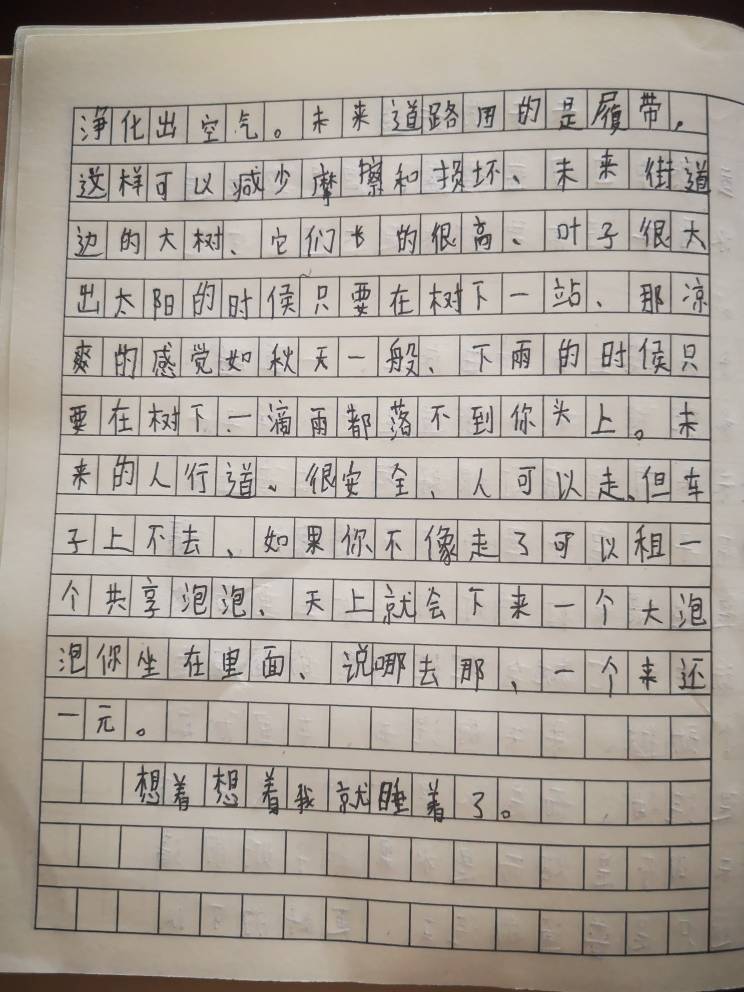 净化出空气。未来道路用的是履带,
这样可以减少摩擦和损坏、未来街道
边的大树、它们长的很高、叶子很大
出太阳的时候只要在树下一站、那凉
爽的感觉如秋天一般、下雨的时候只
要在树下、一滴雨都落不到你头上。未
来的人行道、很安全、人可以走、但车
子上不去、如果你不像走了可以租一
个共享泡泡、天上就会下来一个大泡
泡你坐在里面、说哪去那、一个来还
一元。
想着想着我就睡着了。